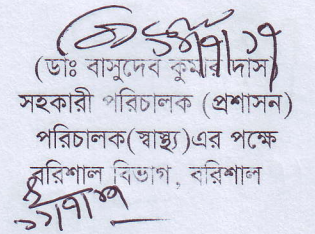 (ডাঃ বাসুদেব কুমার দাস)
সহকারী পরিচালক (প্রশাসন)
পরিচালক(স্বাস্থ্য)এর পক্ষে
বরিশাল বিভাগ, বরিশাল